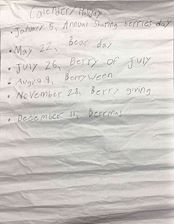 Calendery Holiday
• January 5, Annual Sharing berries day
• May 22, Bear day
• July 26, Berry of July
• August 9, Berryween
• November 28, Berry giving
• December 18, Berrimas